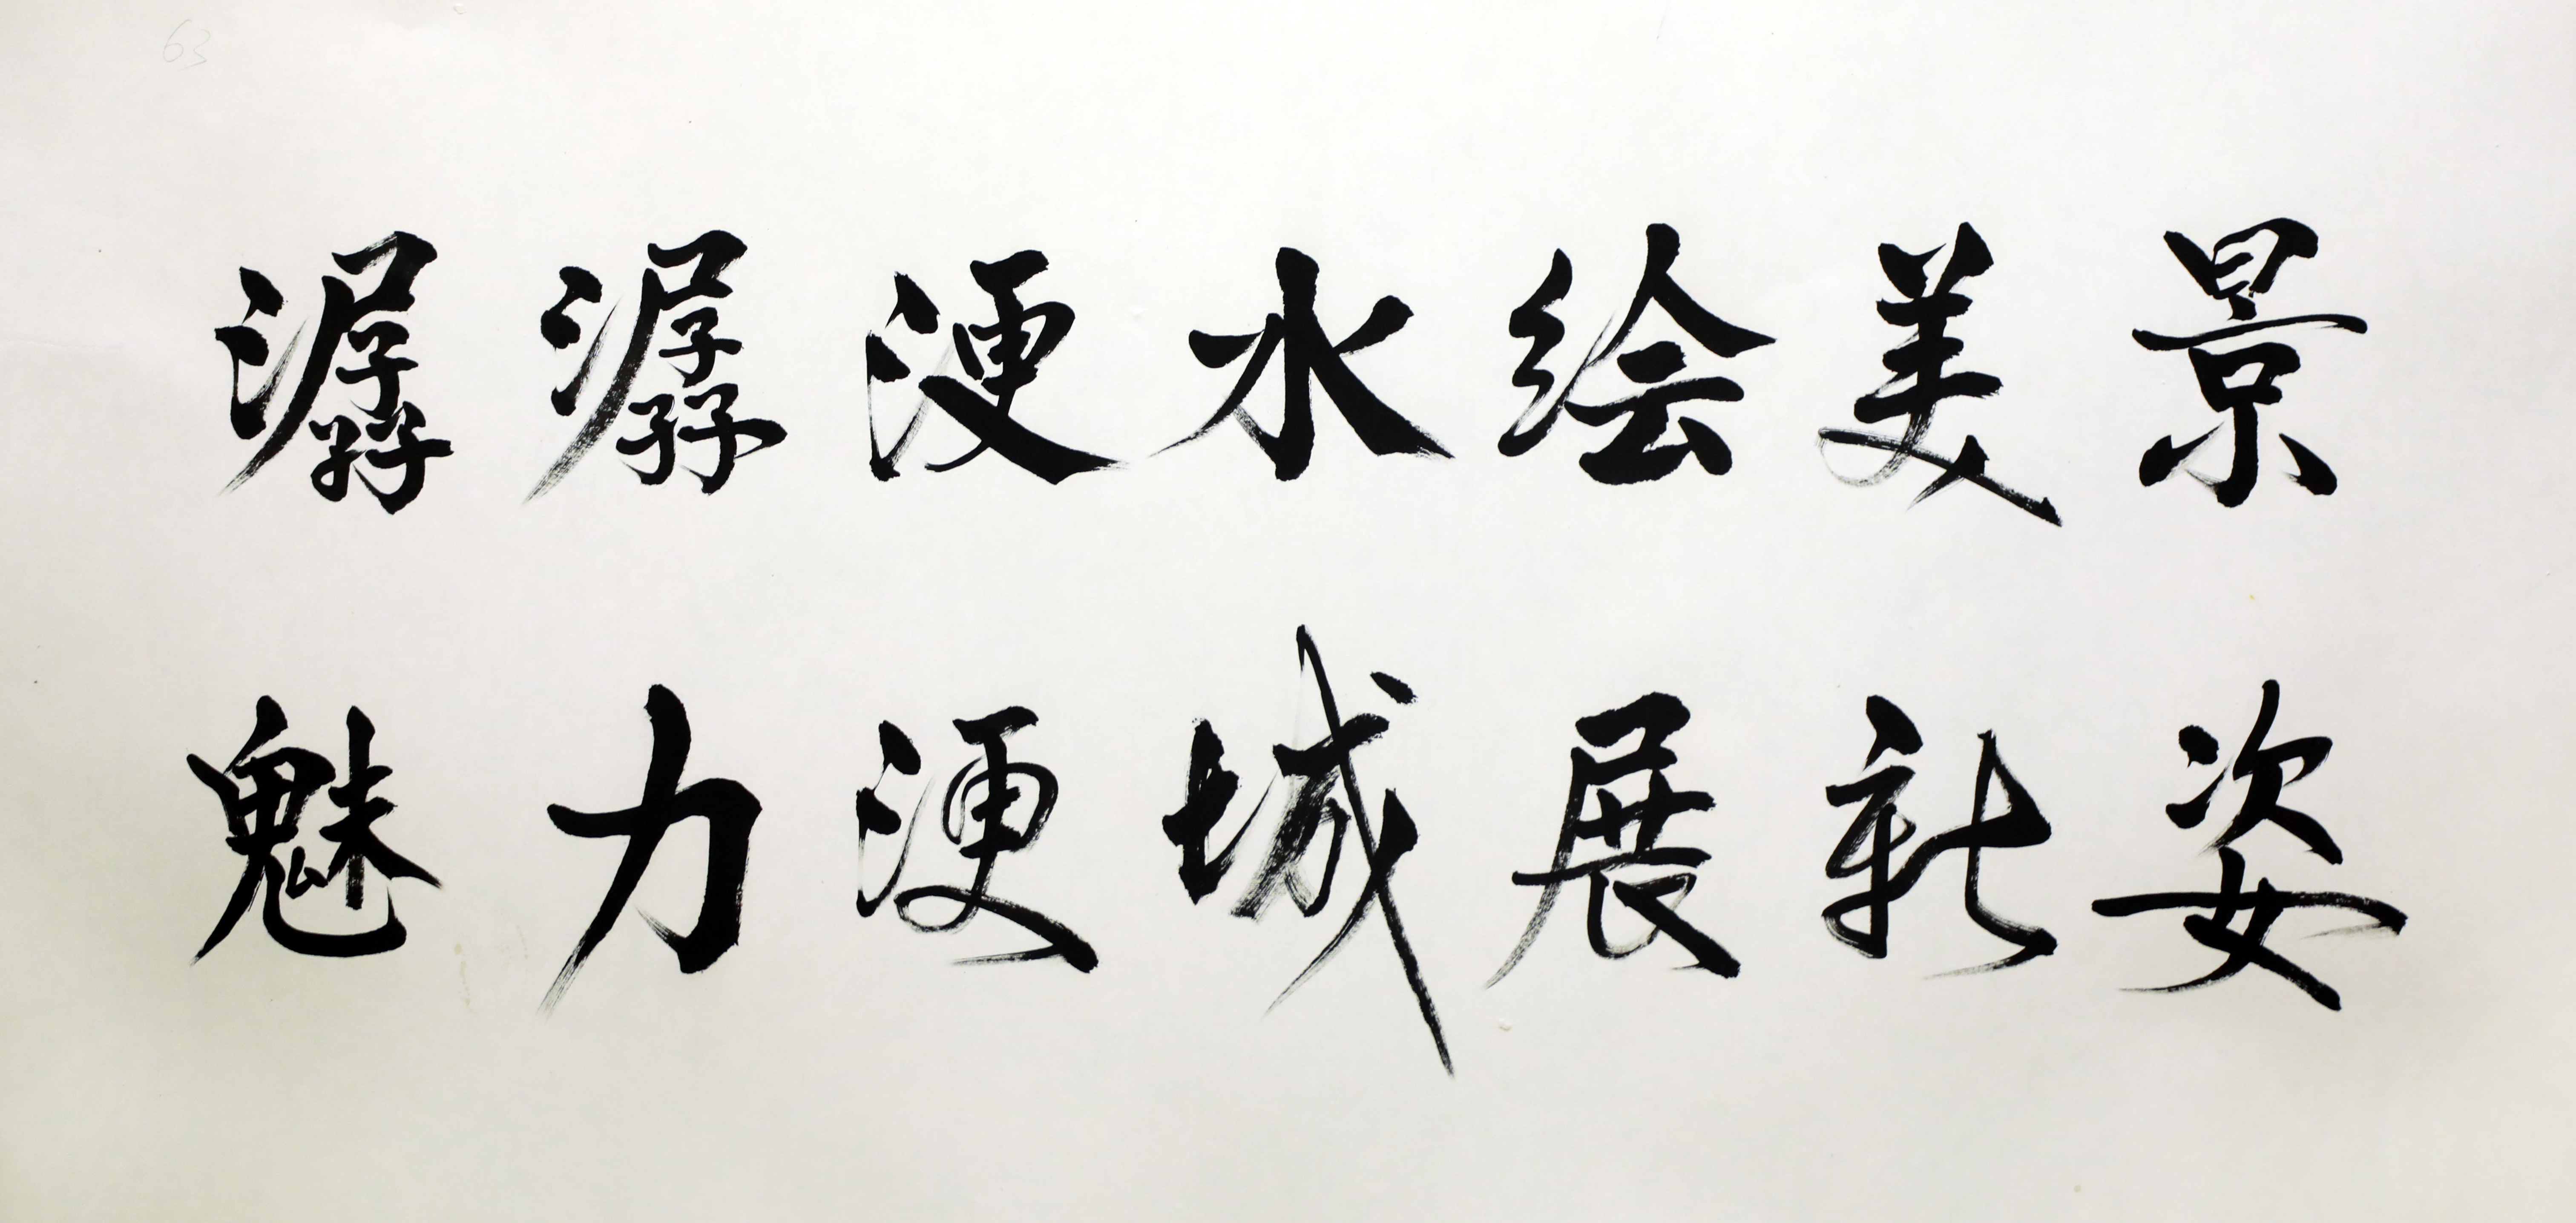 63
潺潺浭水绘美景
魅力浭城展新姿